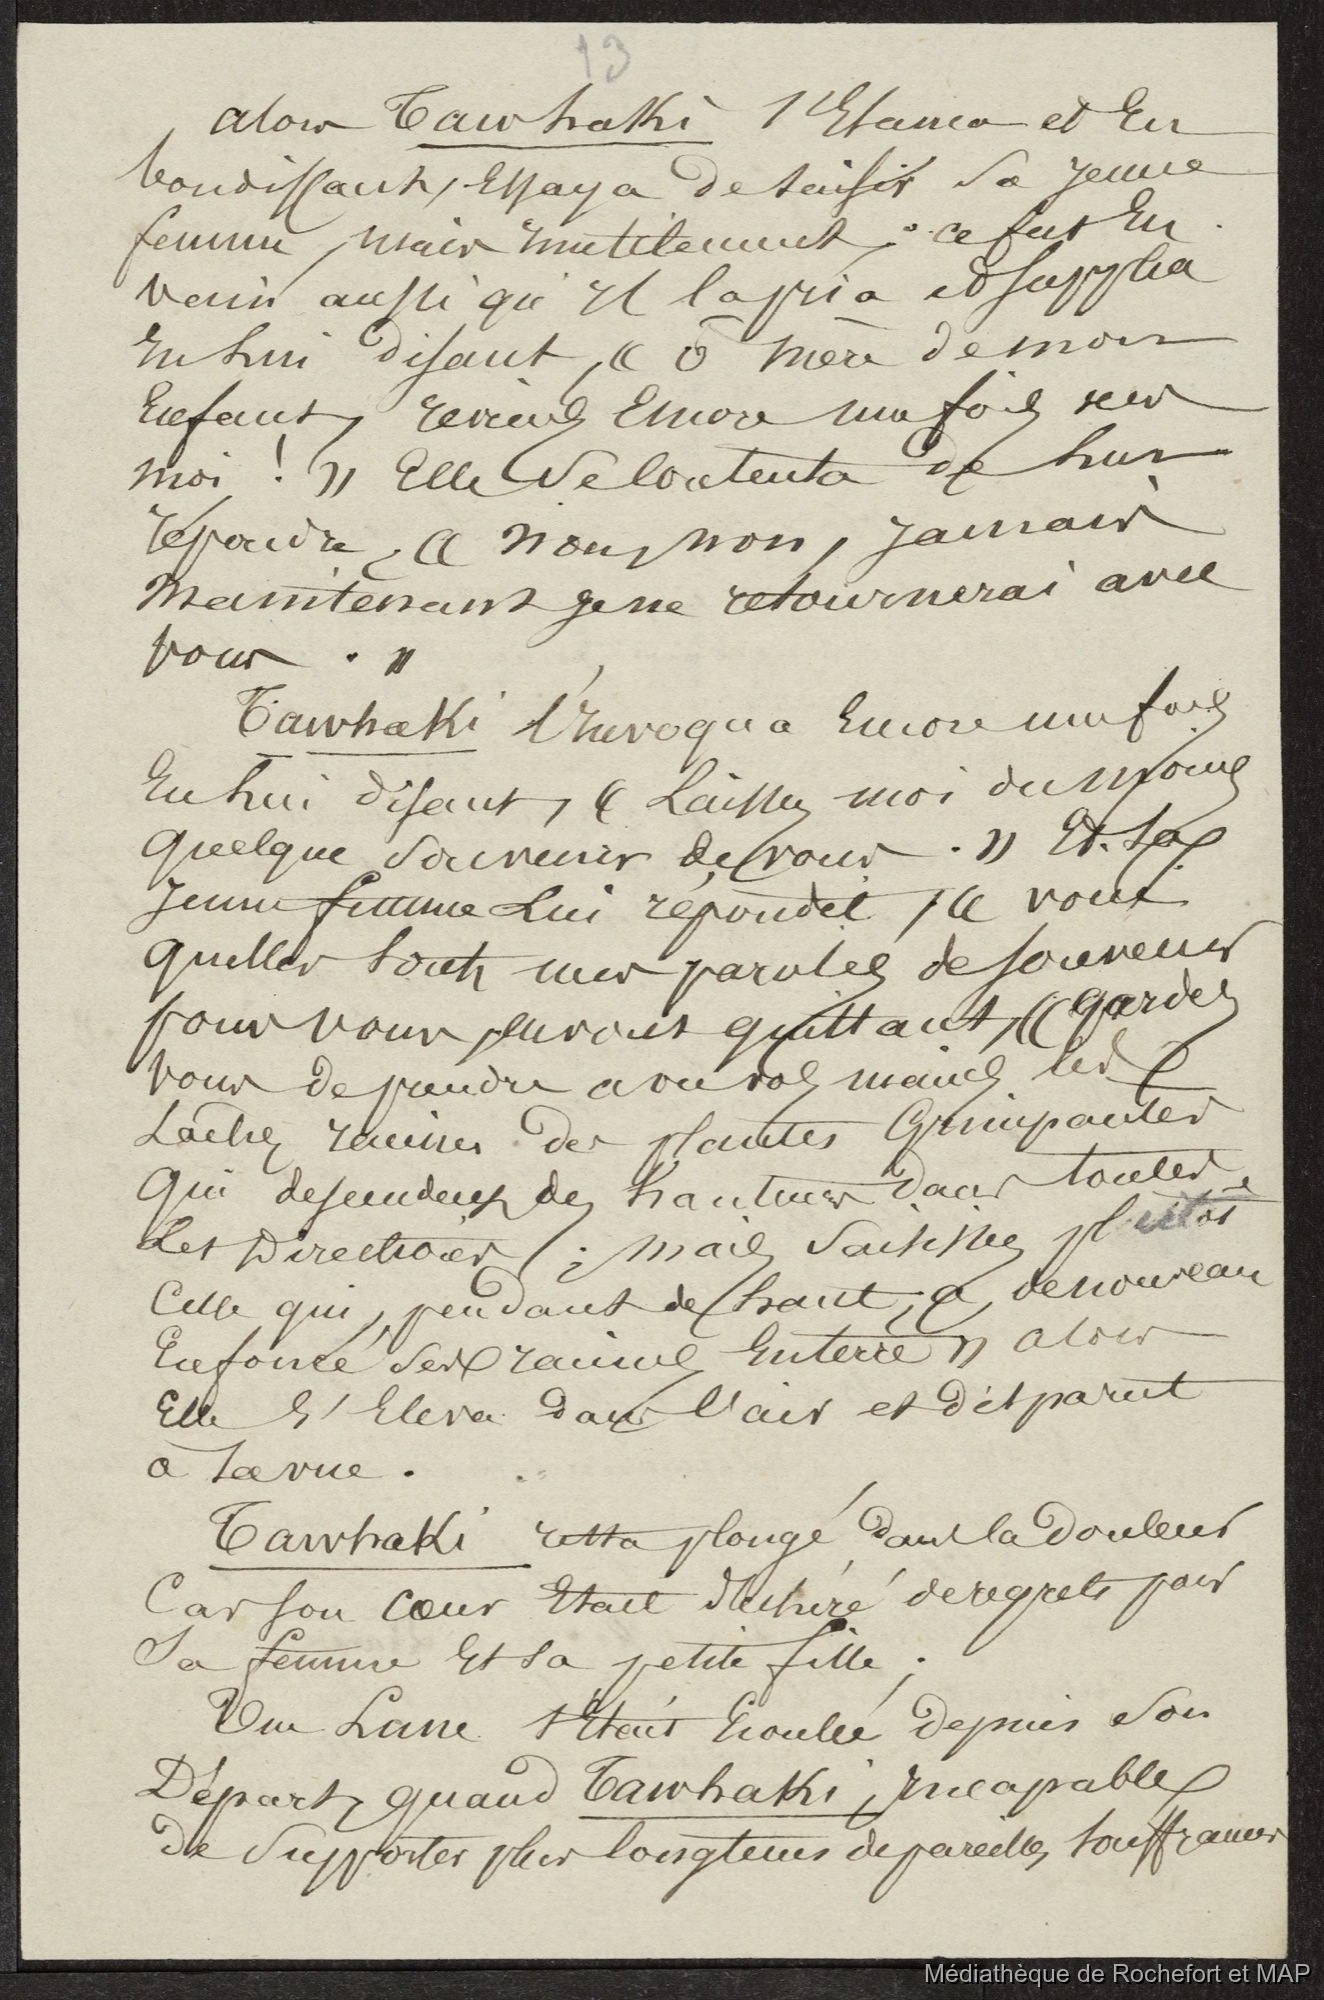 13
alors Tawhaki s'Elança et En
bondissant, Essaya de saisir sa jeune
femme, mais inutilement ; ce fut En
vain aussi qu'il la pria et supplia
En lui disant, « ô mère de mon
Enfant, reviens Encore une fois vers
moi ! » Elle se contenta de lui
répondre, « Non, non, jamais
maintenant je ne retournerai avec
vous . »
Tawhaki l'Invoqua Encore une fois
En lui disant, « Laissez moi du moins
quelque souvenir de vous . » Et sa
jeune femme Lui répondit, « voici
quelles sont mes paroles de souvenir
pour vous, en vous quittant, « gardez
vous de prendre avec vos mains les
Lâches racines des plantes Grimpantes
Qui descendent des hauteurs dans toutes
Les Directions ; mais saisissez plutôt
Celle qui, pendant de haut, a, de nouveau
Enfoncé ses racines En terre » alors
Elle s'Eleva dans l'air et disparut
à sa vue .
Tawhaki resta plongé dans la douleur
Car son cœur Etait déchiré de regrets pour
sa femme Et sa petite fille ;
Une Lune s'Etait Ecoulée depuis son
Départ, quand Tawhaki, Incapable
De supporter plus longtems de pareilles souffrances
Médiathèque de Rochefort et MAP